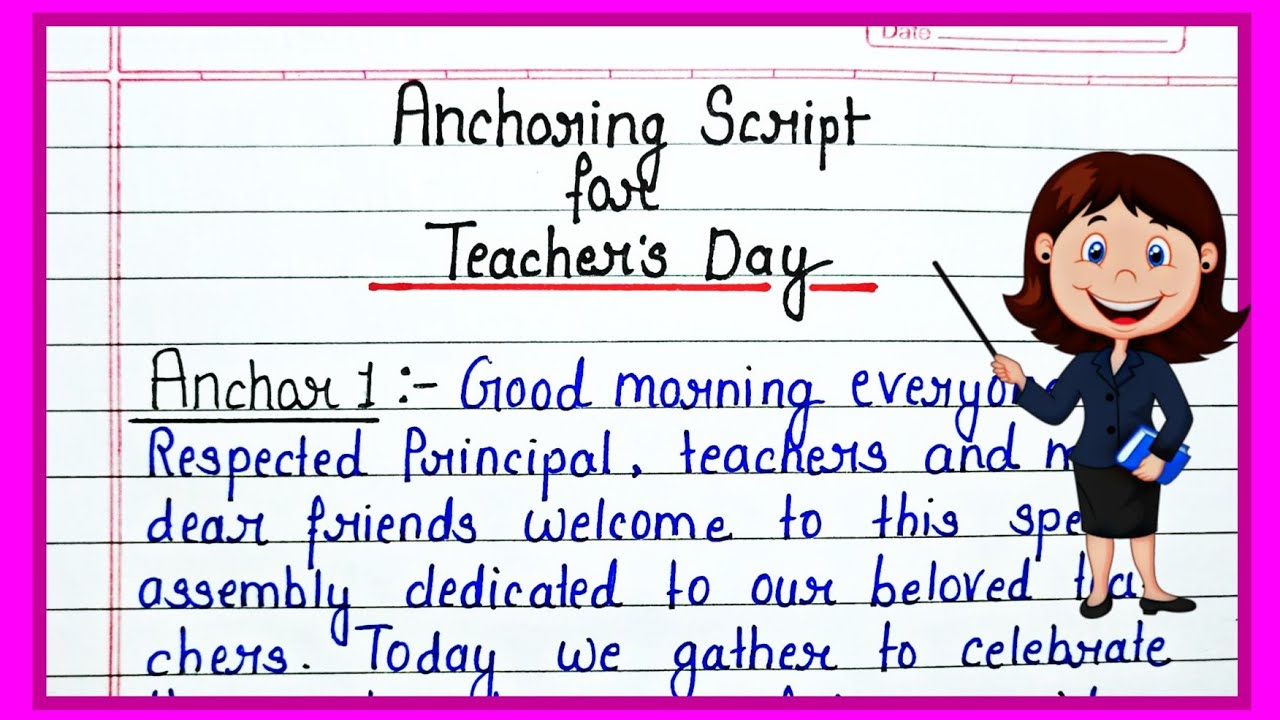 Date
Anchoring Script
for
Teacher's Day
Anchor 1 :- Good morning everyone
Respected Principal, teachers and
dear friends welcome to this
assembly dedicated to our beloved tea-
chers. Today we gather to celebrate